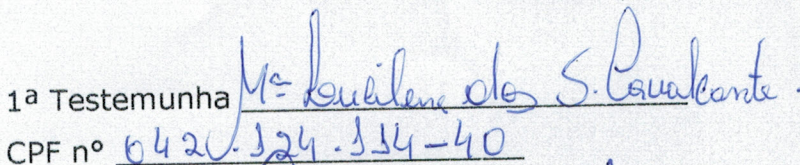 1ª Testemunha Mª Lucilene dos S. Cavalcante.
CPF nº 042.124.114-40